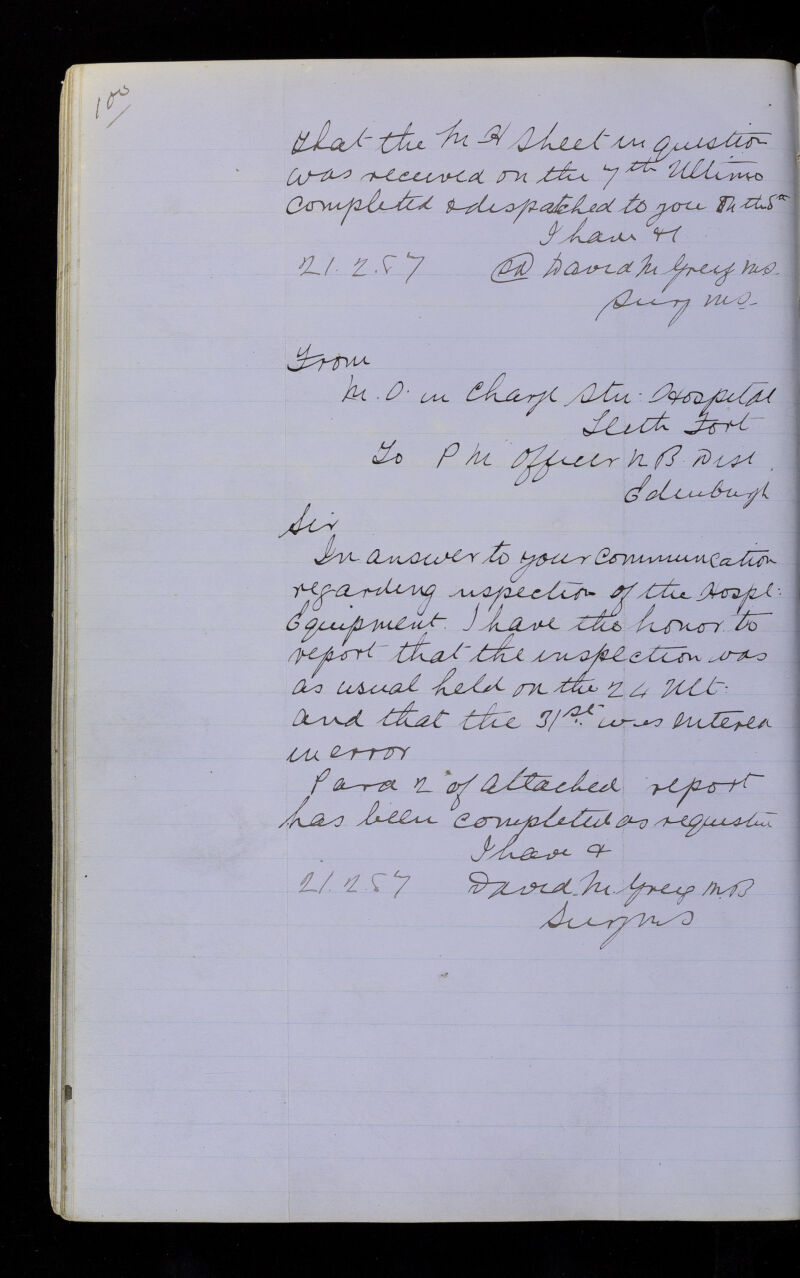 100
that the M H Sheet in question
was received on the 7th Ultimo
completed & despatched to you on the 8th
I have &c
21.2.87 (Sd) David M Greig MB
Surg MS
From
M.O. in Charge Stn: Hospital
Leith Fort
To P M Officer N B Dist.
Edinburgh
Sir
In answer to your communcation
regarding nspection of the Hospl:
Equipment. I have the honor to
report that the inspection was
as usual held on the 24 Ult:
and that the 31st was entered
in error
Para 2 of attached report
has been completed as requested
I have &
21.2.87 David M Greig M.B
Surg MS